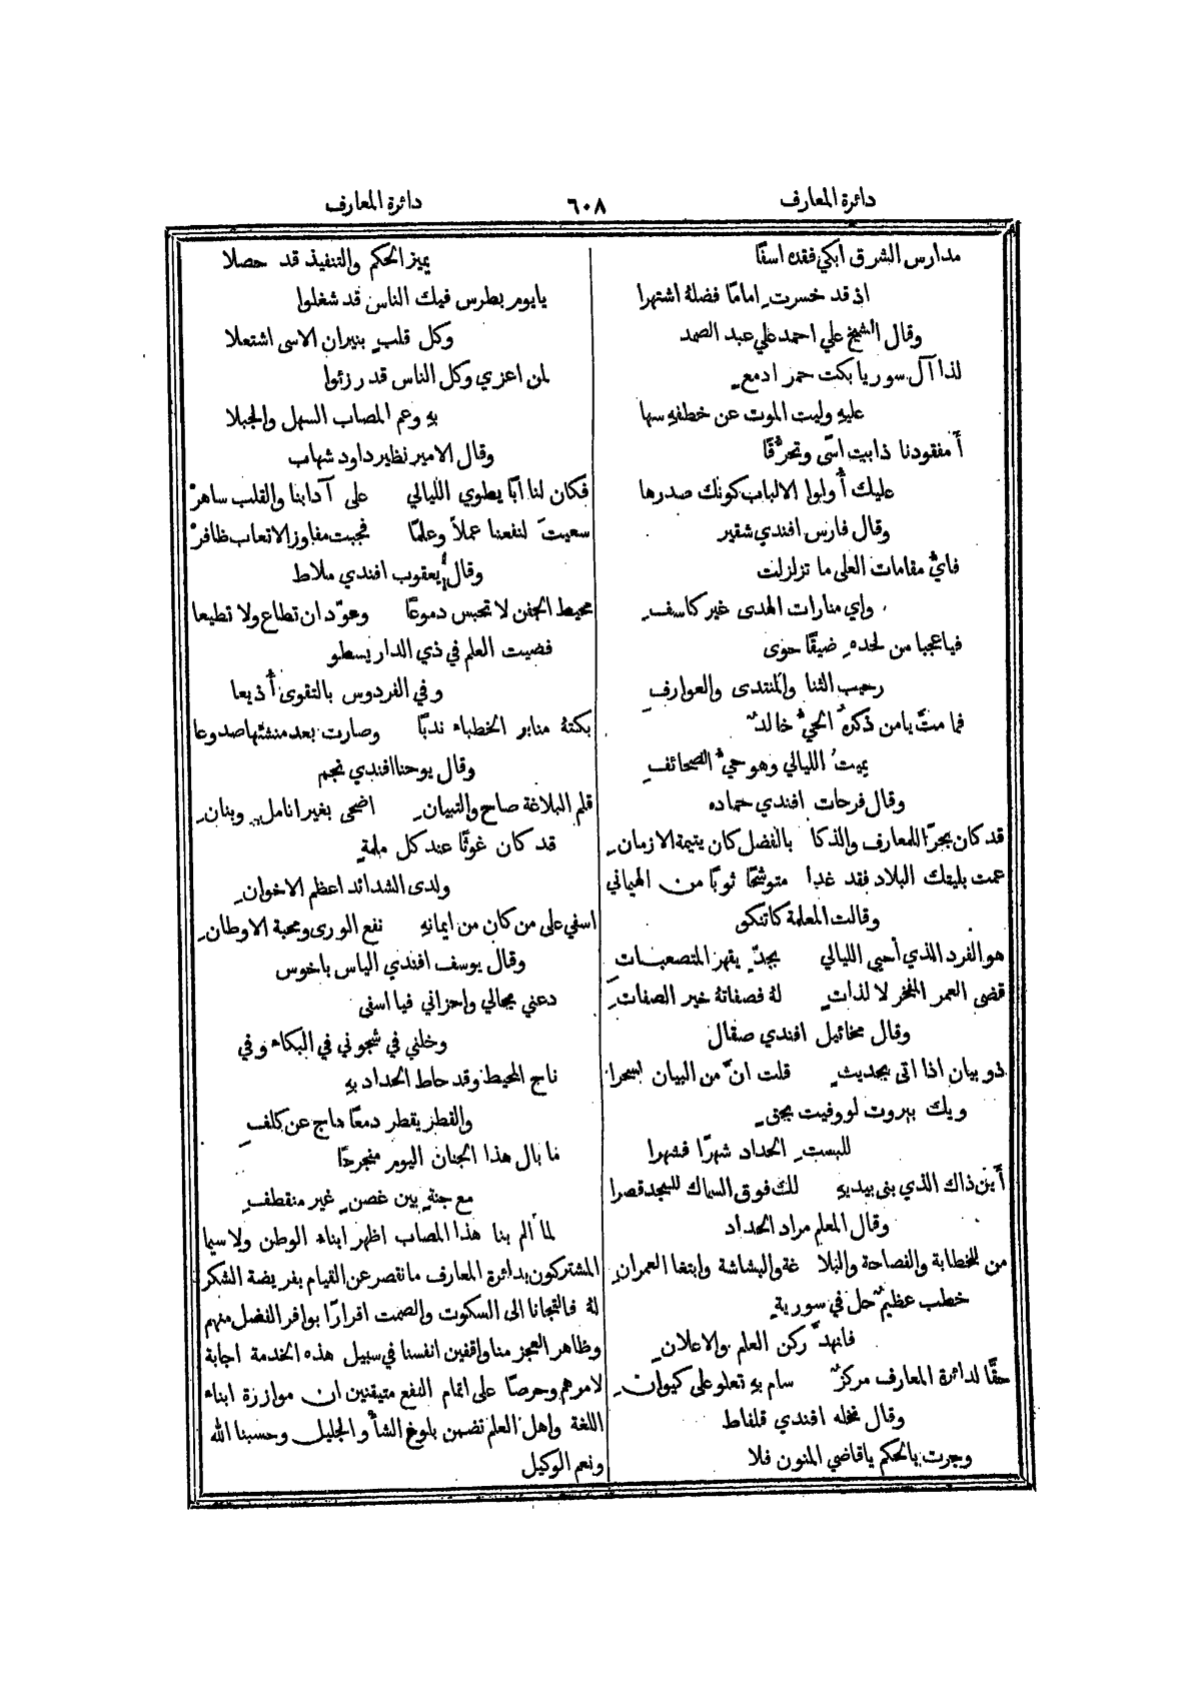 دائرة المعارف
٦٠٨
دائرة المعارف
مدارس الشرق ابكي فقده اسفًا
اذ قد خسرتِ امامًا فضلهُ اشتهرا
وقال الشيخ علي احمد علي عبد الصمد
لذا آل سوريا بكت حمر ادمعٍ
عليهِ وليت الموت عن خطفهِ سها
أمفقودنا ذابت اسًى وتحرُّقًا
عليك أُولوا الالباب كونك صدرها
وقال فارس افندي شقير
فايُّ مقامات العلى ما تزلزلت
واي منارات الهدى غير كاسفِ
فياعجبا من لحدهِ ضيقًا حوى
رحيب الثنا والمنتدى والعوارفِ
فما متَّ يامن ذكرهُ الحيُّ خالدٌ
يميتُ الليالي وهو حيُّ الصحائفِ
وقال فرحات افندي حماده
قد كان بحرًا للمعارف والذكا بالفضل كان يتيمة الازمانِ
عمت بليتك البلاد فقد غدا متوشحًا ثوبًا من الهياني
وقالت المعلمة كاتنكو
هو الفرد الذي أحيى الليالي بجدٍّ يقهر المتصعبات
قضى العمر المفخر لا لذاتٍ لهُ فصفاتهُ خير الصفاتِ
وقال مخائيل افندي صقال
ذو بيان اذا اتى بحديثٍ قلت انَّ من البيان لسحرا
ويك بيروت لو وفيت بحقٍ
للبستِ الحداد شهرًا فشهرا
أين ذاك الذي بنى بيديهِ لك فوق السماك للمجد قصرا
وقال المعلم مراد الحداد
من للخطابة والفصاحة والبلا غة والبشاشة وابتغا العمرانِ
خطب عظيمٌ حل في سوريةٍ
فانهدَّ ركن العلم والاعلانِ
حقًا لدائرة المعارف مركزٌ سام بهِ تعلو على كيوانِ
وقال نخله افندي قلفاط
وجرت بالحكم ياقاضي المنون فلا
يميز الحكم والتنفيذ قد حصلا
يايوم بطرس فيك الناس قد شغلوا
وكل قلبٍ بنيران الاسى اشتعلا
لمن اعزي وكل الناس قد رزئوا
بهِ وعم المصاب السهل والجبلا
وقال الامير نظير داود شهاب
فكان لنا ابًا يطوي الليالي على آدابنا والقلب ساهرْ
سعيتَ لنفعنا عملاً وعلمًا فجبت مفاوز الاتعاب ظافرْ
وقال يعقوب افندي ملاط
محيط الجفن لا تحبس دموعًا وعوّد ان تطاع ولا تطيعا
فصيت العلم في ذي الدار يسطو
وفي الفردوس بالتقوى أُذيعا
بكتهُ منابر الخطباء ندبًا وصارت بعد منشئها صدوعا
وقال يوحنا افندي نجم
قلم البلاغة صاح والتبيانِ اضحى بغير اناملٍ وبنانِ
قد كان غوثًا عند كل ملمةٍ
ولدى الشدائد اعظم الاخوانِ
اسفي على من كان من ايمانهِ نفع الورى ومحبة الاوطانِ
وقال يوسف افندي الياس باخوس
دعني بحالي واحزاني فيا اسفي
وخلني في شجوني في البكاء وفي
ناج المحيط وقد حاط الحداد بهِ
والقطر يقطر دمعًا هاج عن كلفِ
ما بال هذا الجنان اليوم منجردًا
مع جنةٍ بين غصنٍ غير منقطفِ
لما ألم بنا هذا المصاب اظهر ابناء الوطن ولا سيما
المشتركون بدائرة المعارف ما نقصر عن القيام بفريضة الشكر
لهُ فالتجانا الى السكوت والصمت اقرارًا بوافر الفضل منهم
وظاهر العجز منا واقفين انفسنا في سبيل هذه الخدمة اجابة
لامرهم وحرصًا على اتمام النفع متيقنين ان موازرة ابناء
اللغة واهل العلم تضمن بلوغ الشأو الجليل وحسبنا الله
ونعم الوكيل